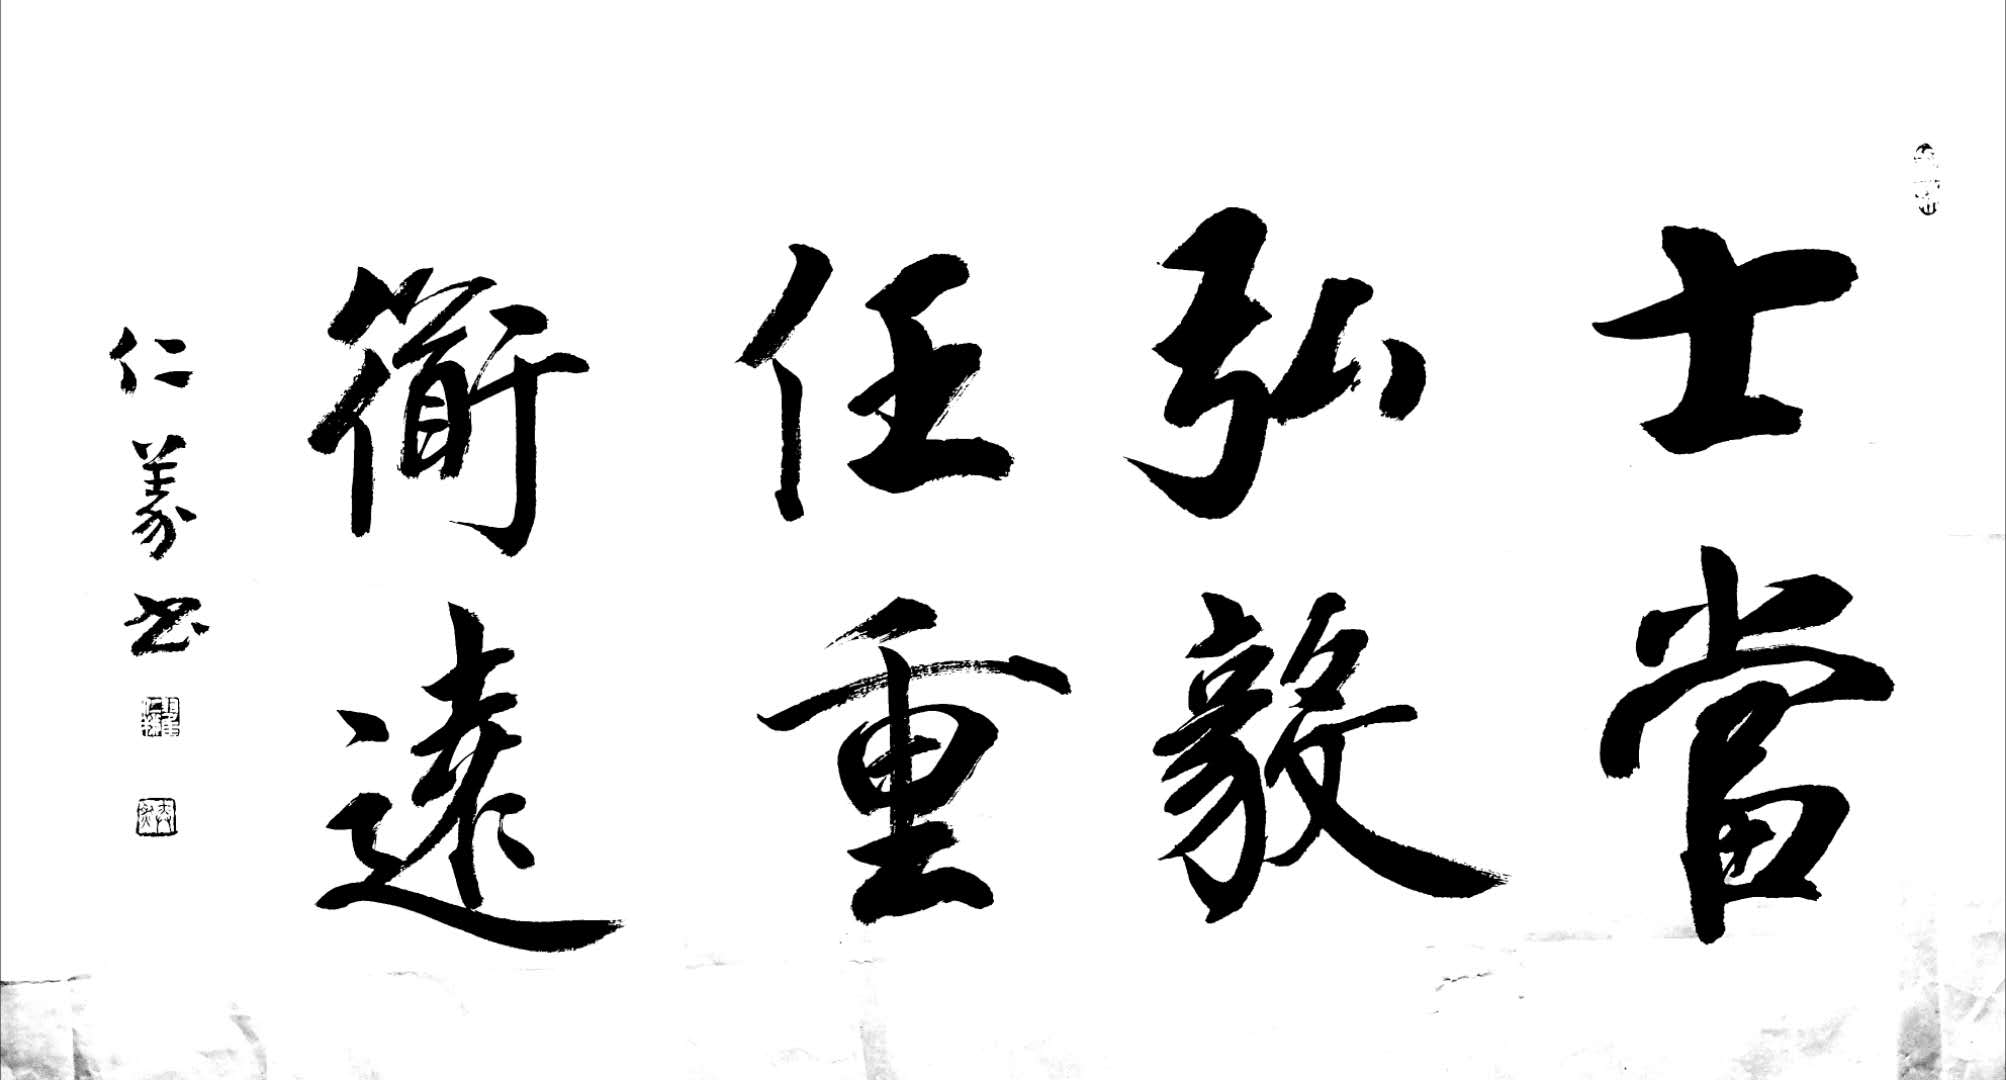 士當
弘毅
任重
衜遠
仁義書